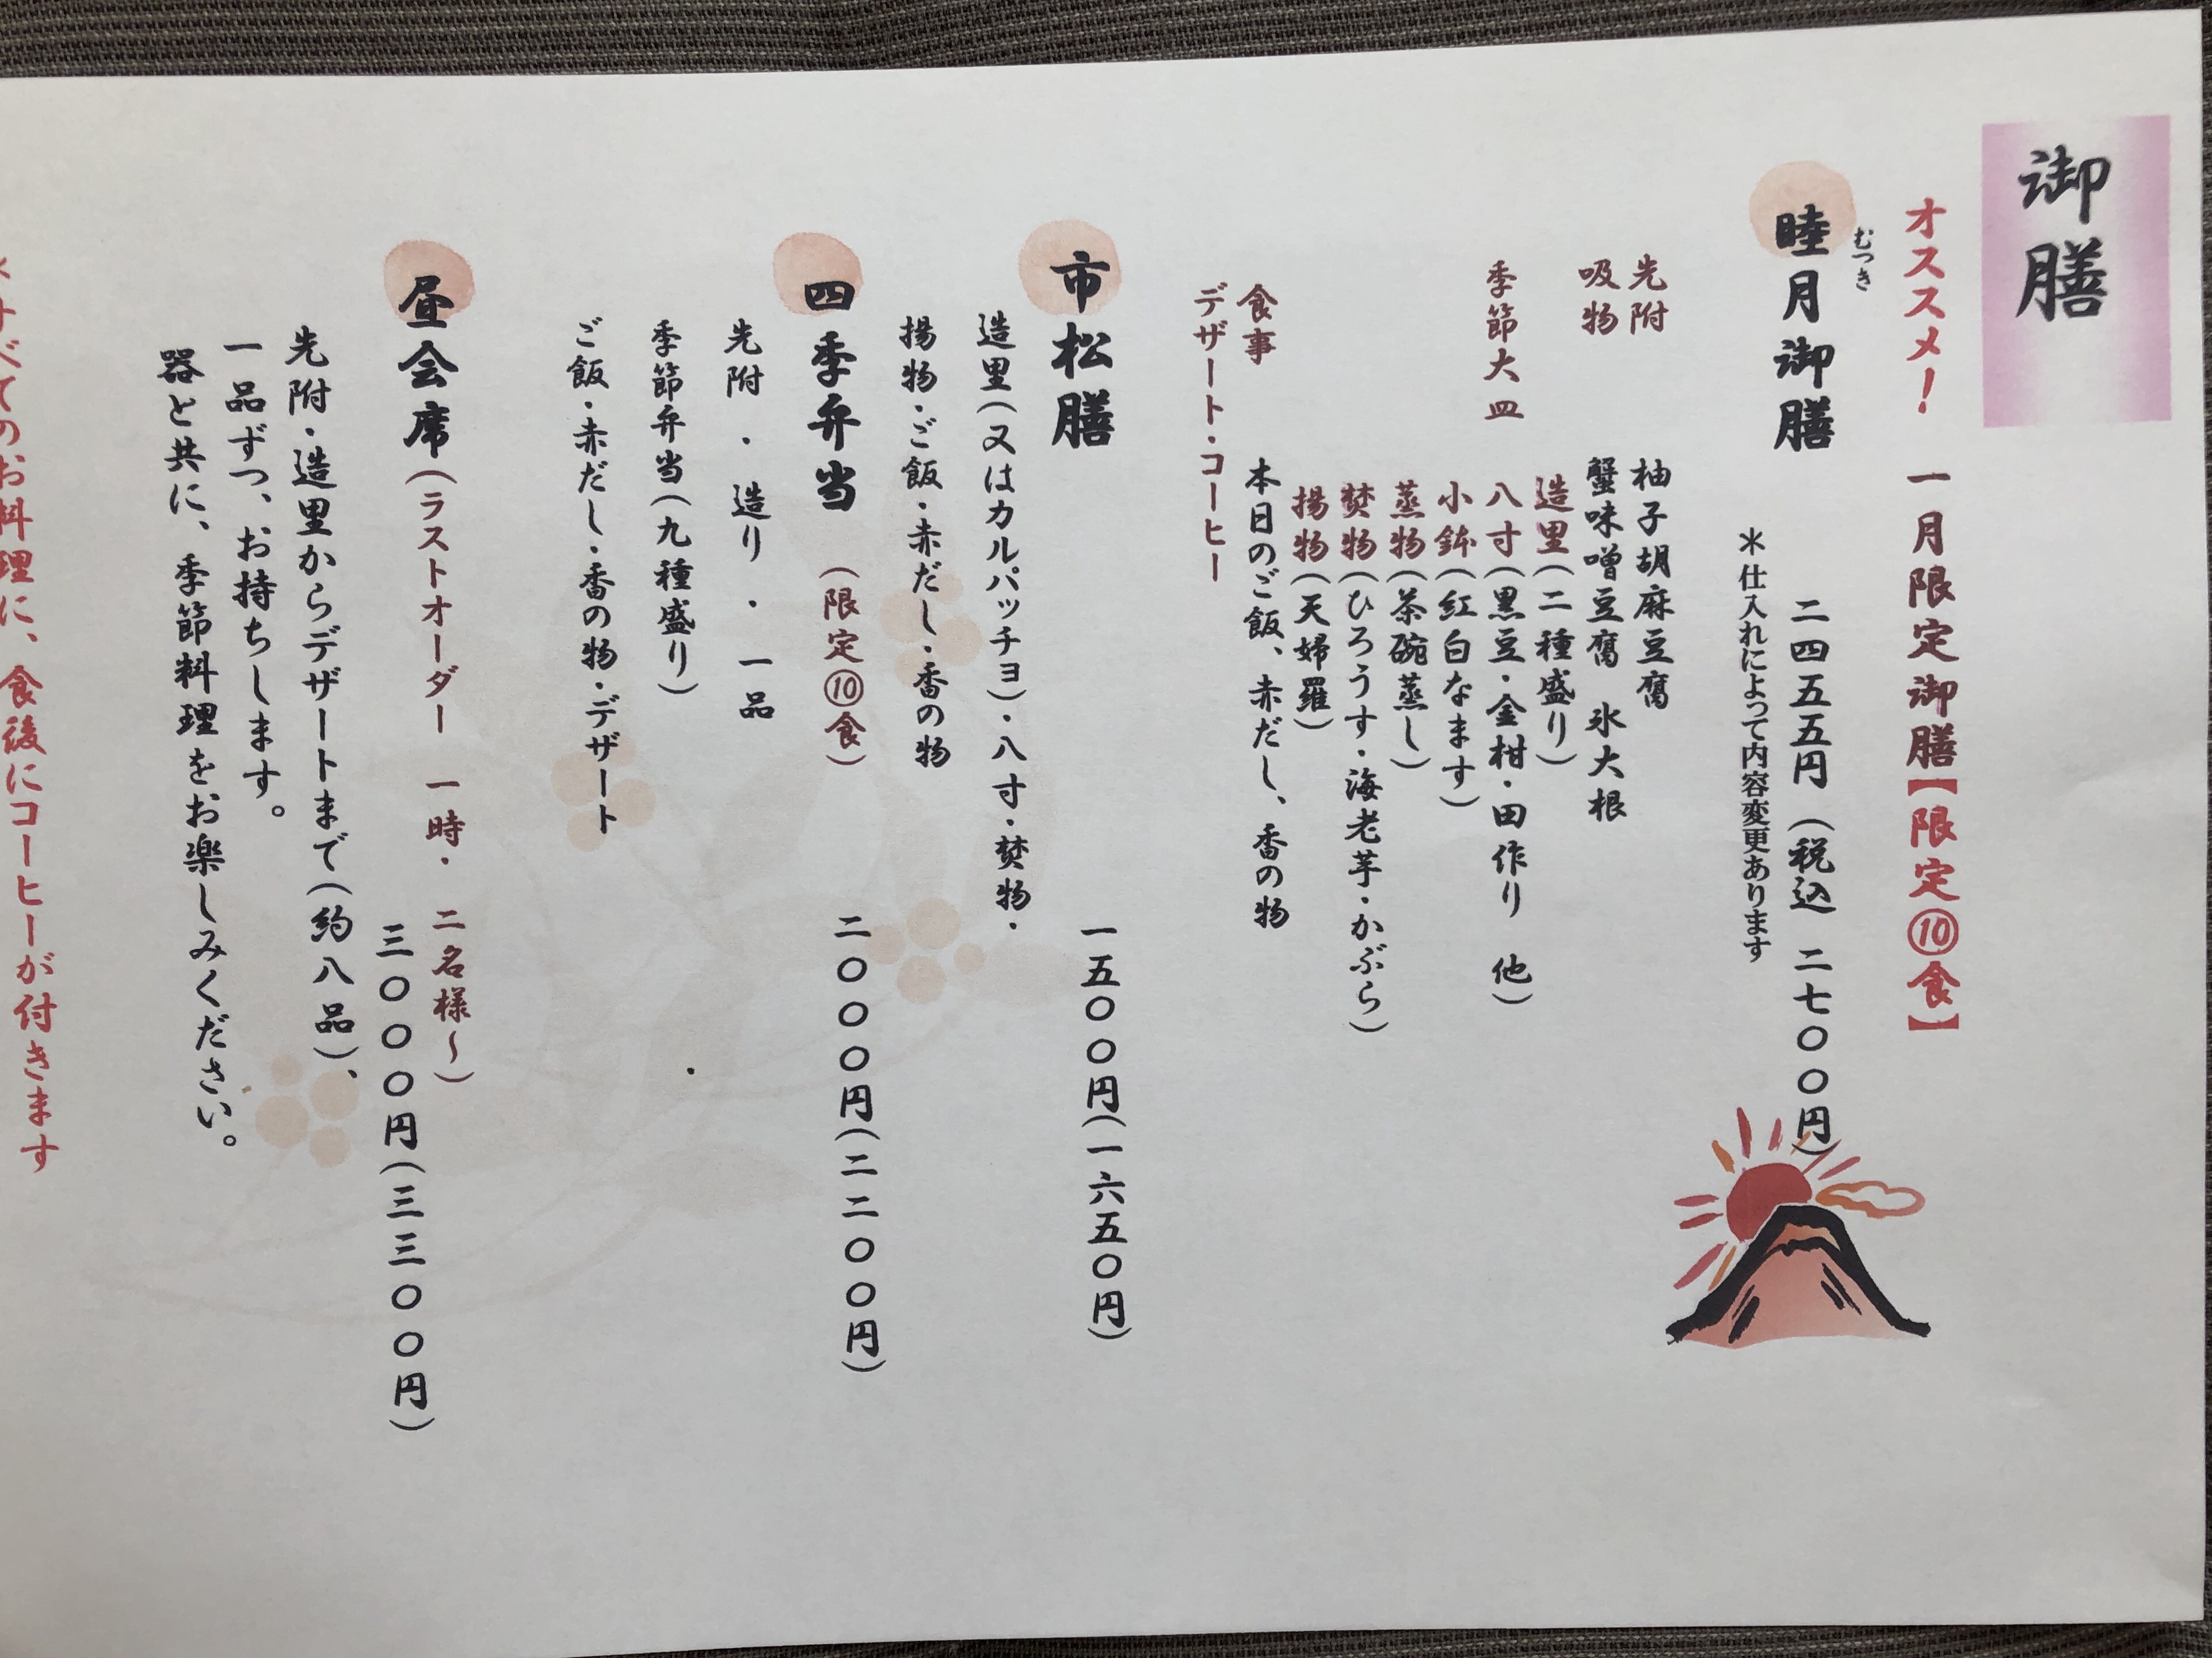 御膳
オススメ！　一月限定御膳【限定⑩食】
むつき
睦月御膳　二四五五円（税込　二七〇〇円）
＊仕入れによって内容変更あります
先附　柚子胡麻豆腐
吸物　蟹味噌豆腐　氷大根
造里（二種盛り）
季節大皿　八寸（黒豆・金柑・田作り　他）
小鉢（紅白なます）
蒸物（茶碗蒸し）
焚物（ひろうす・海老芋・かぶら）
揚物（天婦羅）
食事　本日のご飯、赤だし、香の物
デザート・コーヒー
市松膳　一五〇〇円（一六五〇円）
造里（又はカルパッチョ）・八寸・焚物・
揚物・ご飯・赤だし・香の物
四季弁当　（限定⑩食）　二〇〇〇円（二二〇〇円）
先附　・　造り　・　一品
季節弁当（九種盛り）
ご飯・赤だし・香の物・デザート
昼会席（ラストオーダー　一時・　二名様～）
三〇〇〇円（三三〇〇円）
先附・造里からデザートまで（約八品）、
一品ずつ、お持ちします。
器と共に、季節料理をお楽しみください。
＊すべてのお料理に、食後にコーヒーが付きます